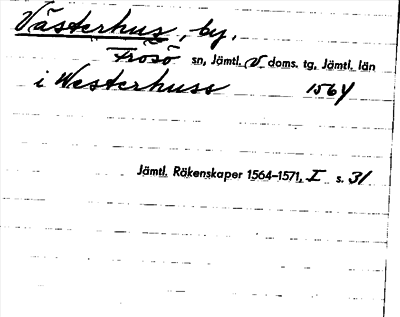 Västerhus, by,
Frösö sn, Jämtl. V doms. tg, Jämtl. län
i Westerhuss 1564
Jämtl. Räkenskaper 1564–1571, I s. 31